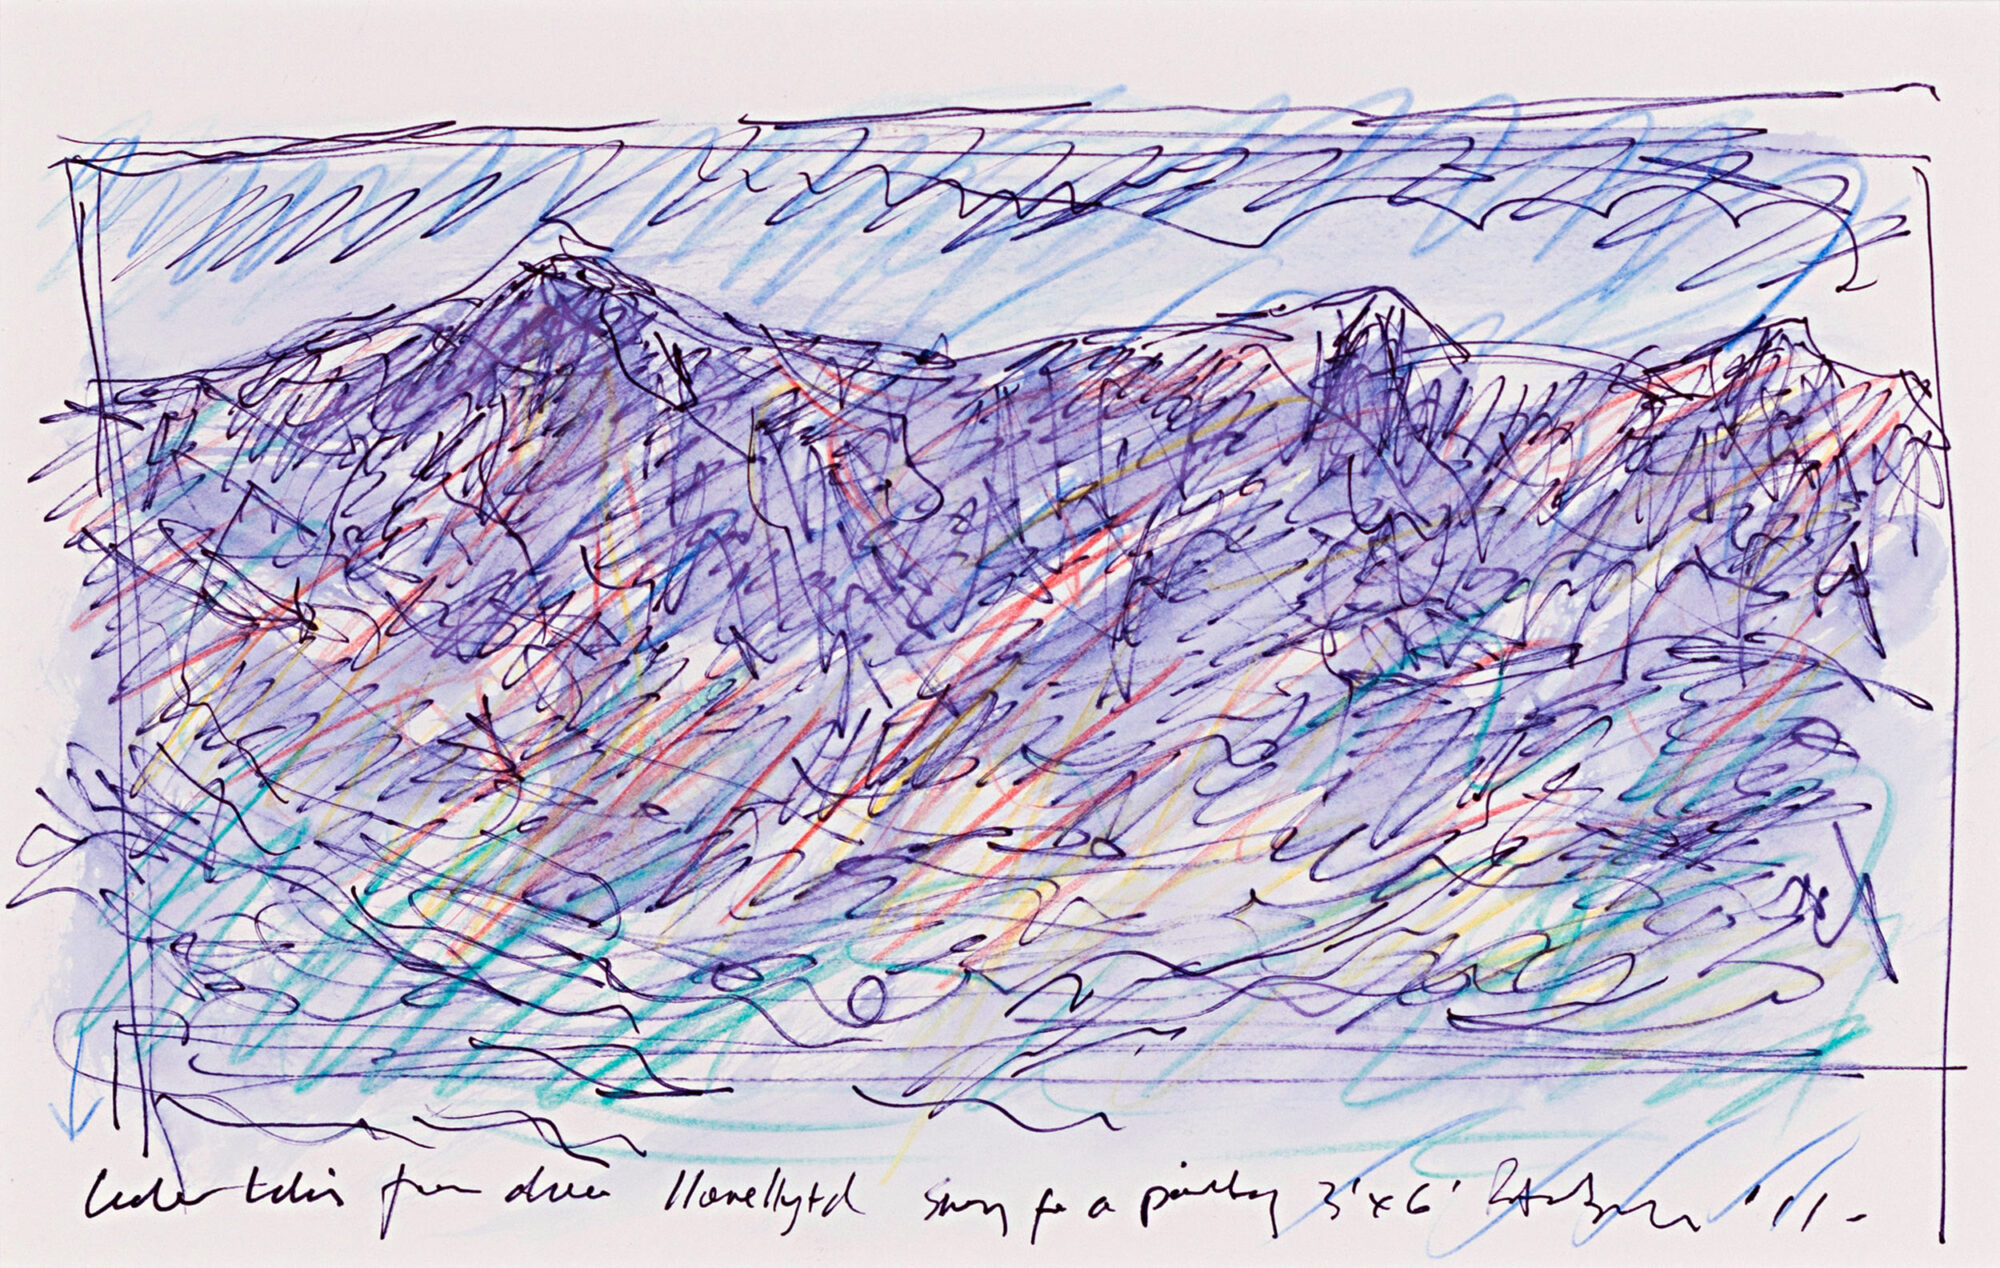 Cader Idris from above Llanelltyd Study for a painting 3' x 6' '11.